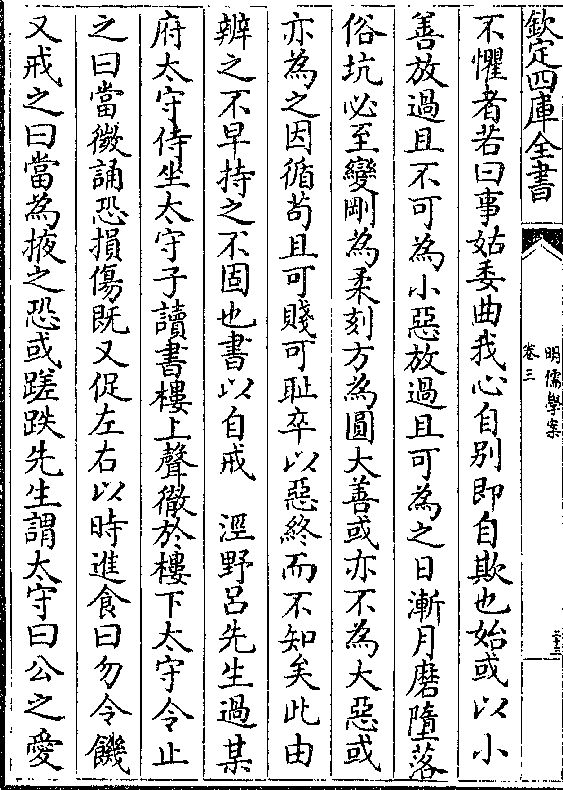 欽定四庫全書
明儒學案
卷三
二十三
不懼者若曰事姑委曲我心自别即自欺也始或以小
善放過且不可為小惡放過且可為之日漸月磨墮落
俗坑必至變剛為柔刻方為圓大善或亦不為大惡或
亦為之因循苟且可賤可耻卒以惡終而不知矣此由
辨之不早持之不固也書以自戒　涇野呂先生過某
府太守侍坐太守子讀書樓上聲徹於樓下太守令止
之曰當微誦恐損傷既又促左右以時進食曰勿令饑
又戒之曰當為掖之恐或蹉跌先生謂太守曰公之愛